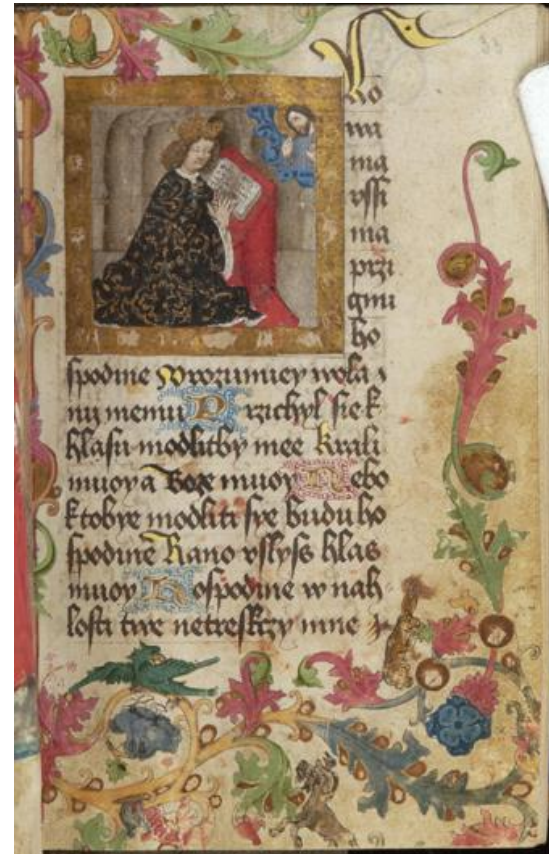 wa
ma
vssi
ma
przi
gmi
ho
spodine Wrozumiey wola
nii memu Przichyl sie k
hlasu modlitby mee Krali
muoy a Boze muoy Nebo
k tobye modliti sye budu ho
spodine Rano vslyss hlas
muoy Hospodine w nah
losti twe netreskzy mne